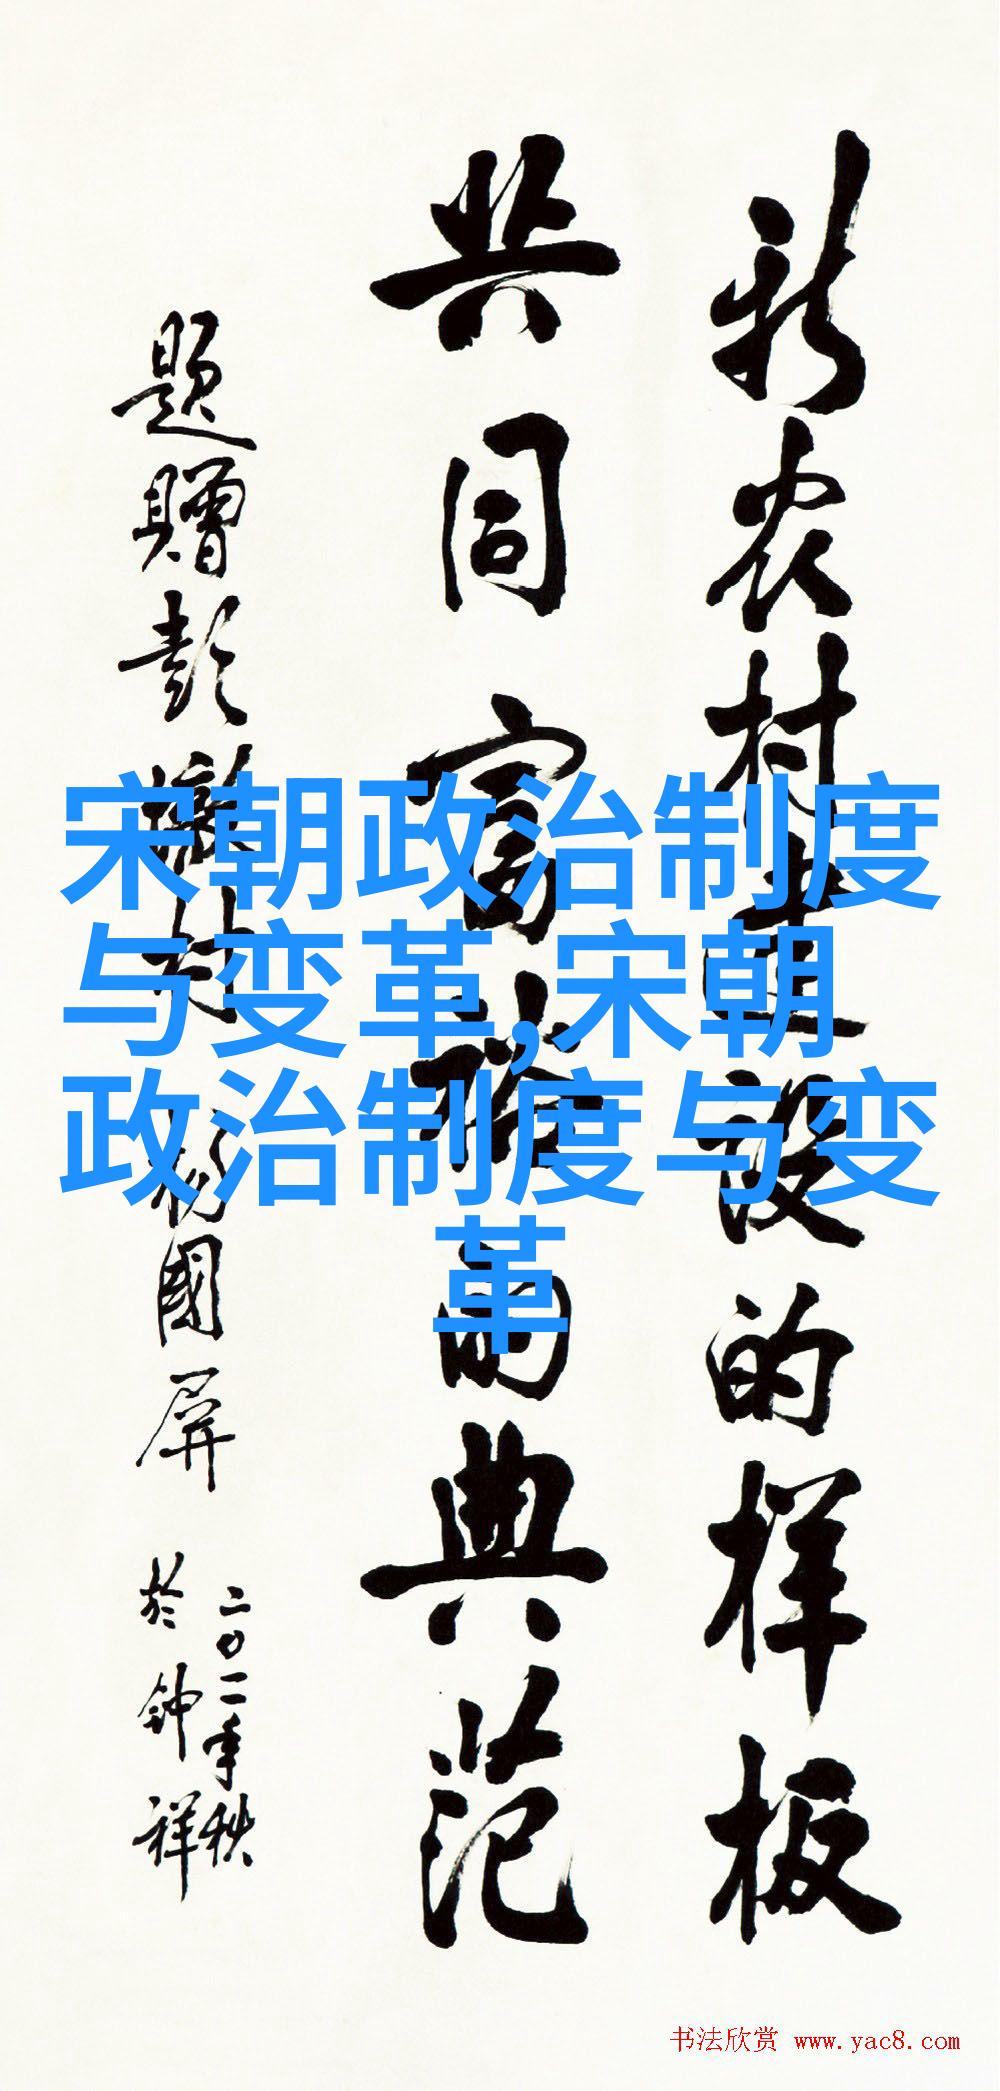 新农村建设的样板
共同富裕的典范
题贈彭墩村 杨國屏
二〇一一年秋
於钟祥
宋朝政治制度
与变革,宋朝
政治制度与变
革
书法欣赏 www.yac8.com